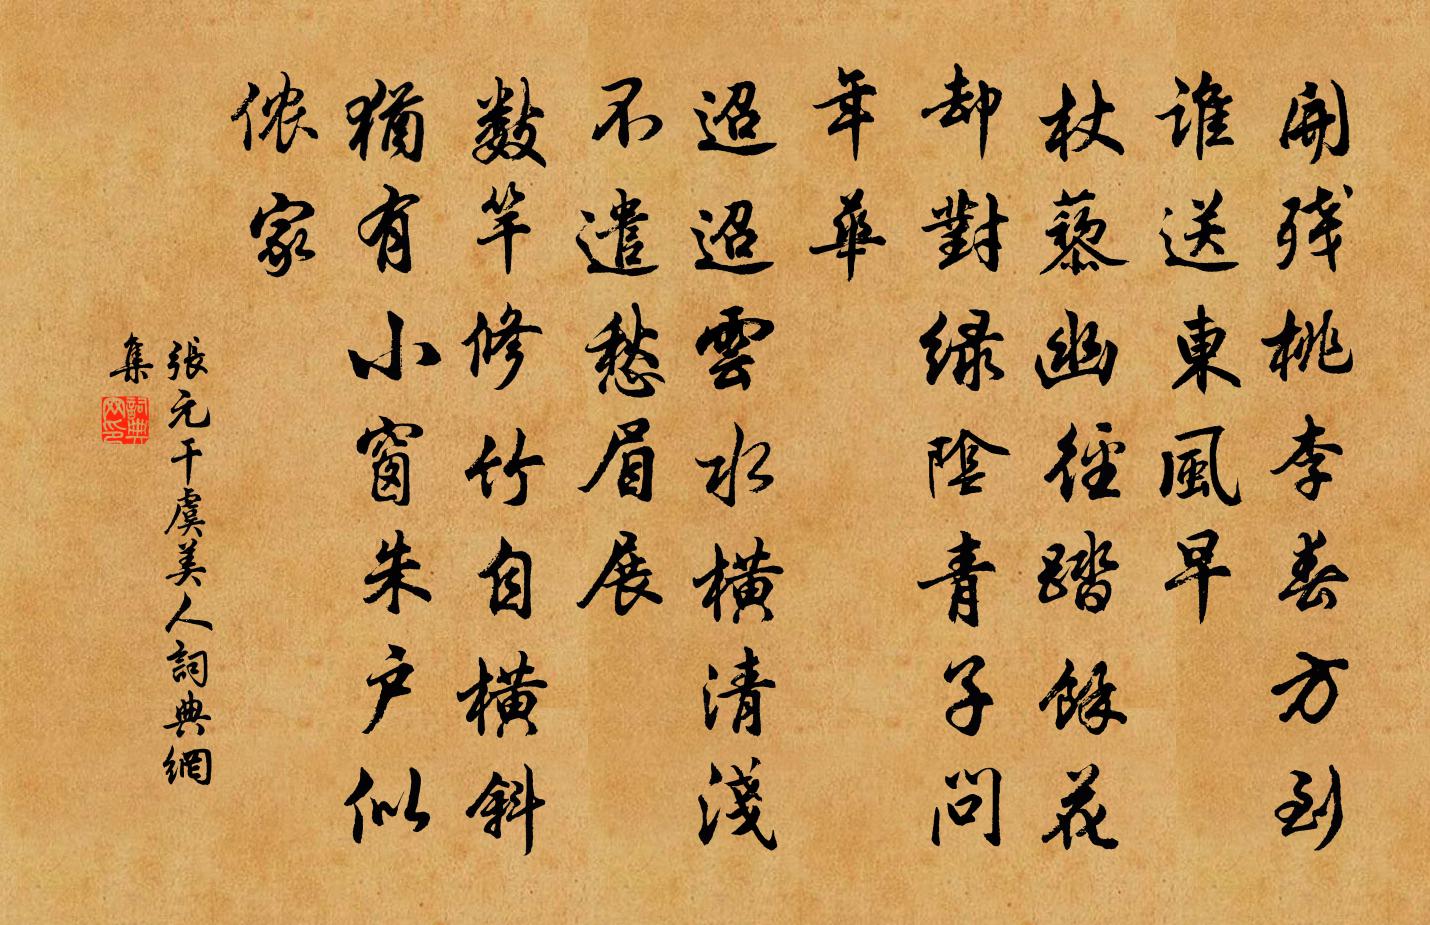 開残桃李春方到
誰送東風早
杖藜幽徑踏餘花
却對緑陰青子問
年華
迢迢雲水橫清淺
不遣愁眉展
數竿修竹自橫斜
猶有小窗朱户似
儂家
張元干虞美人詞典網
集
詞典
網印